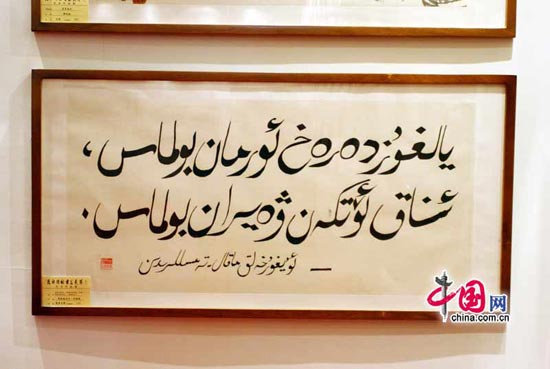 يالغۇز دەرەخ ئورمان بولماس،
ئىناق ئۆتكەن ۋەيران بولماس.
— ئۇيغۇر خەلق ماقال - تەمسىللىرىدىن
中国网
china.com.cn